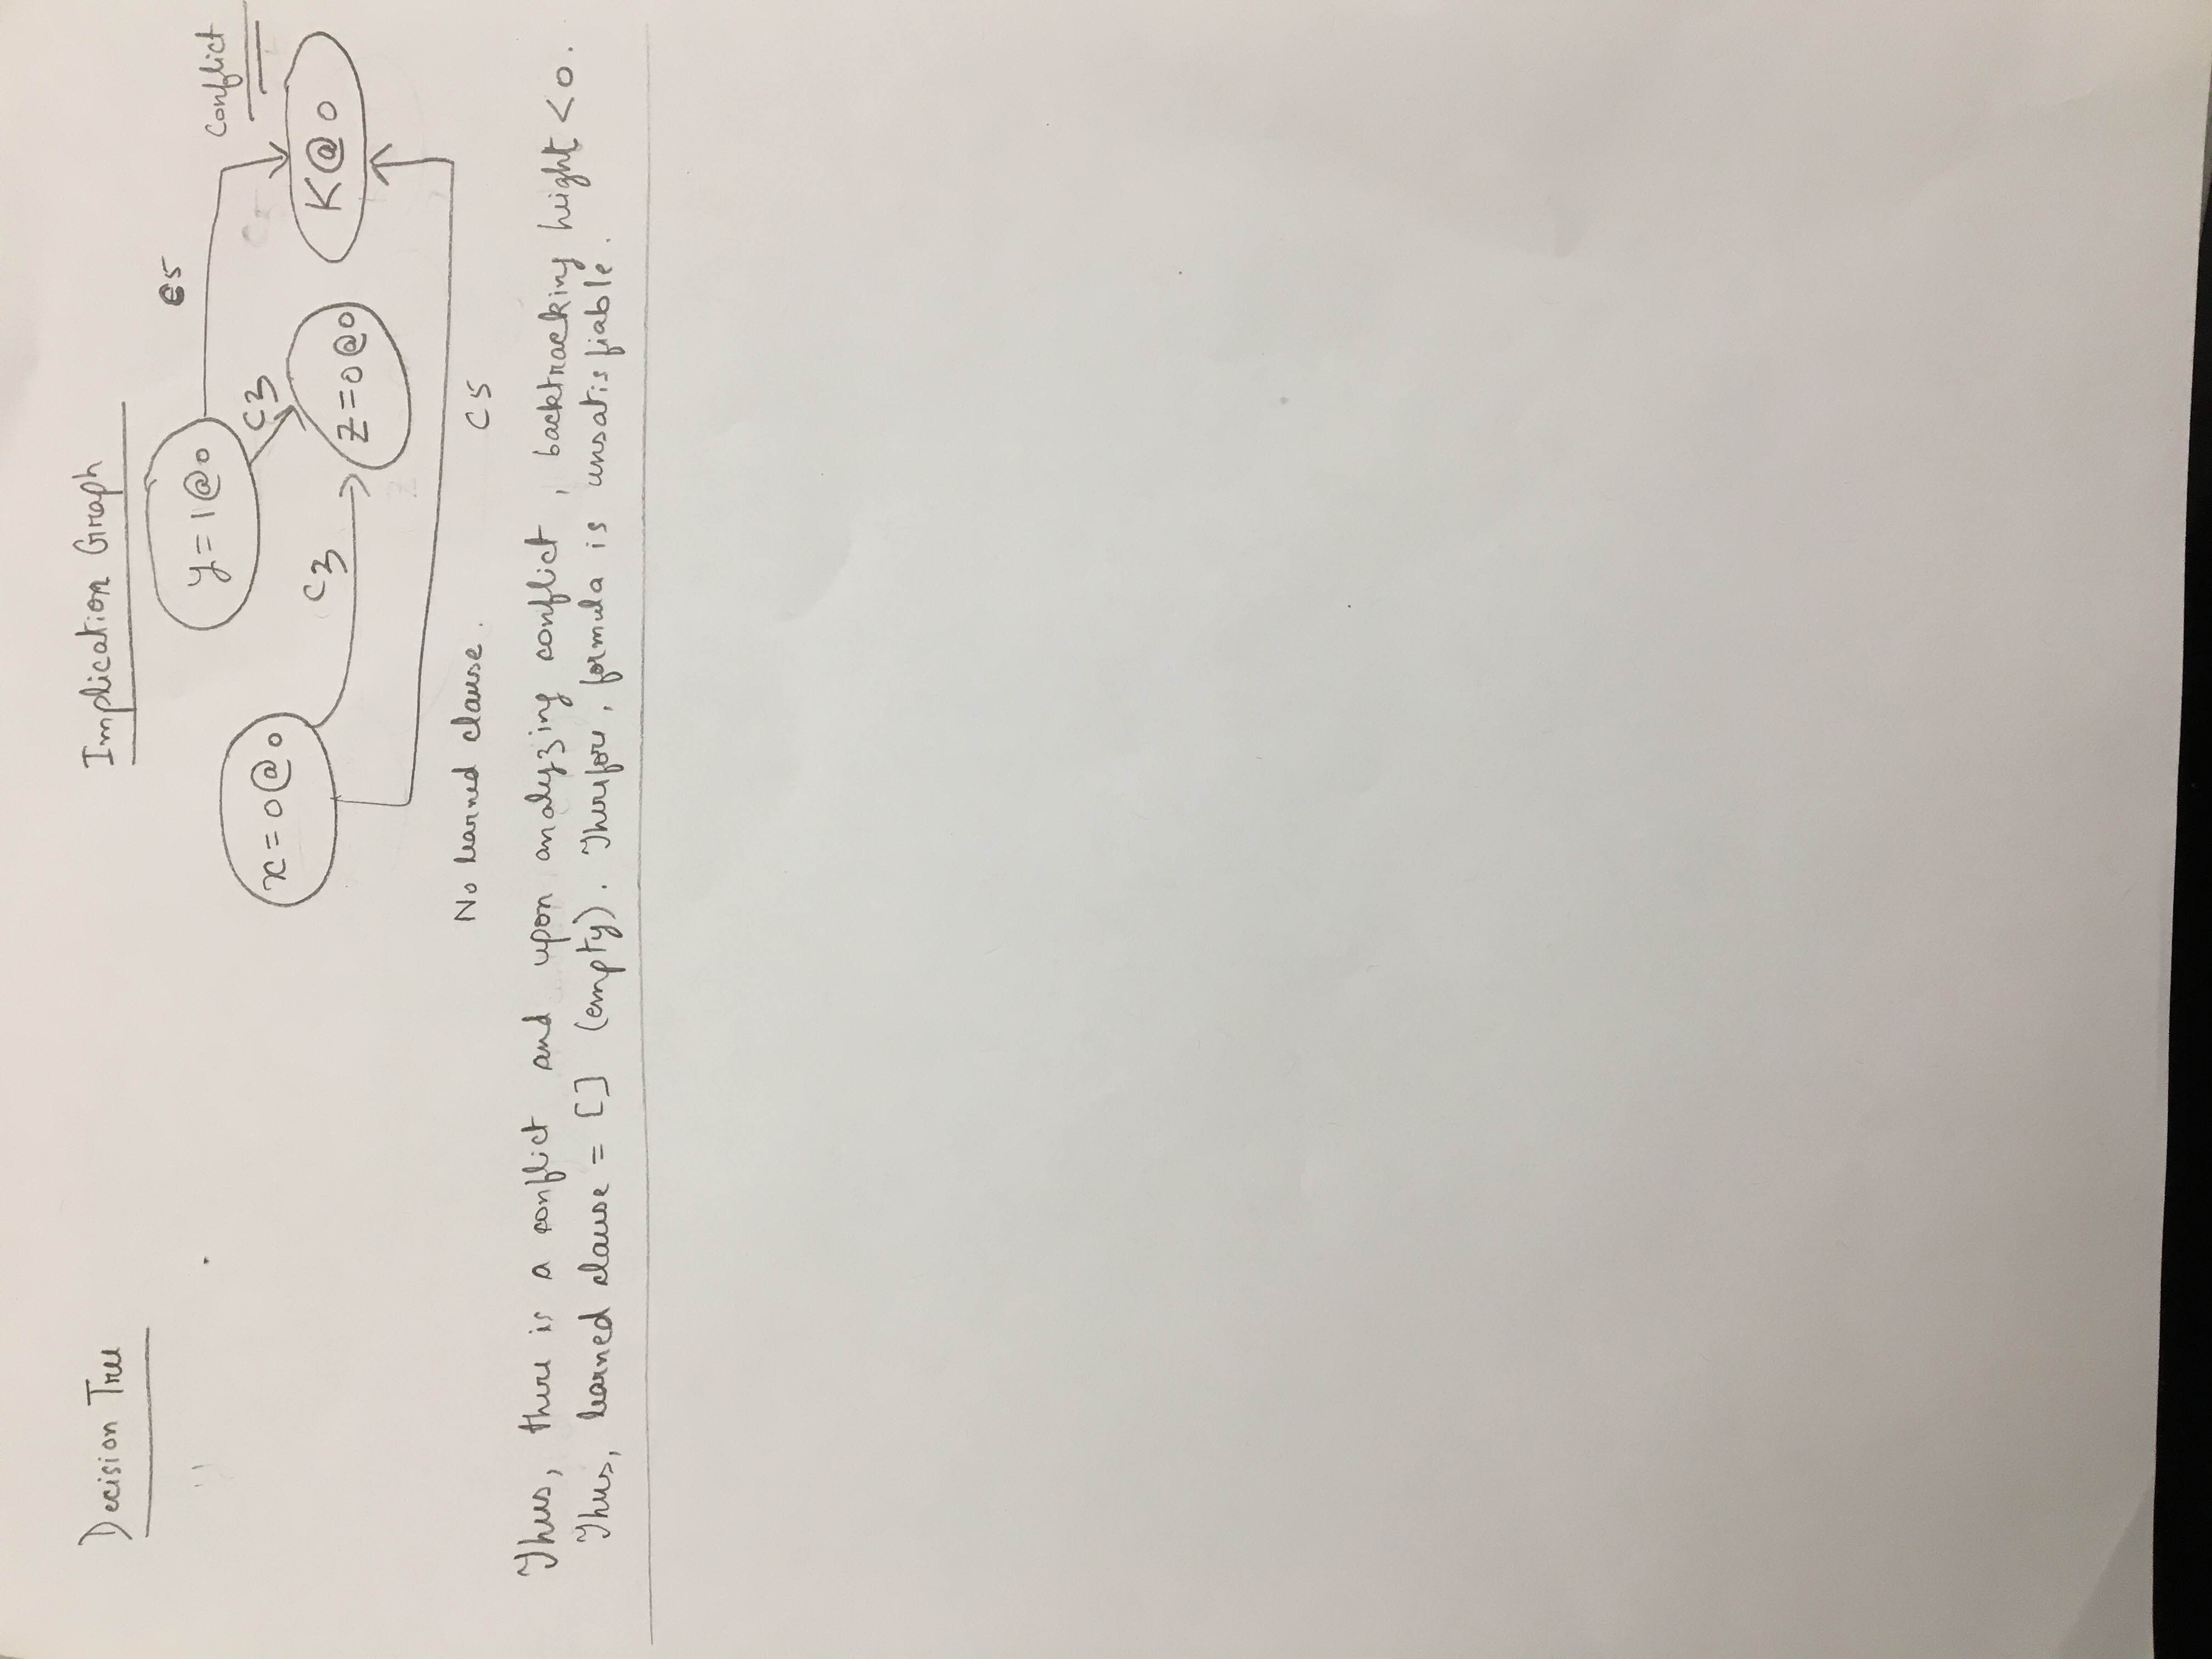 Decision Tree
Implication Graph
y=1@0
C5
Conflict
x=0@0
C3
C3
z=0@0
K@0
No learned clause.
C5
Thus, there is a conflict and upon analyzing conflict, backtracking height <0.
Thus, learned clause = [] (empty). Therefore, formula is unsatisfiable.